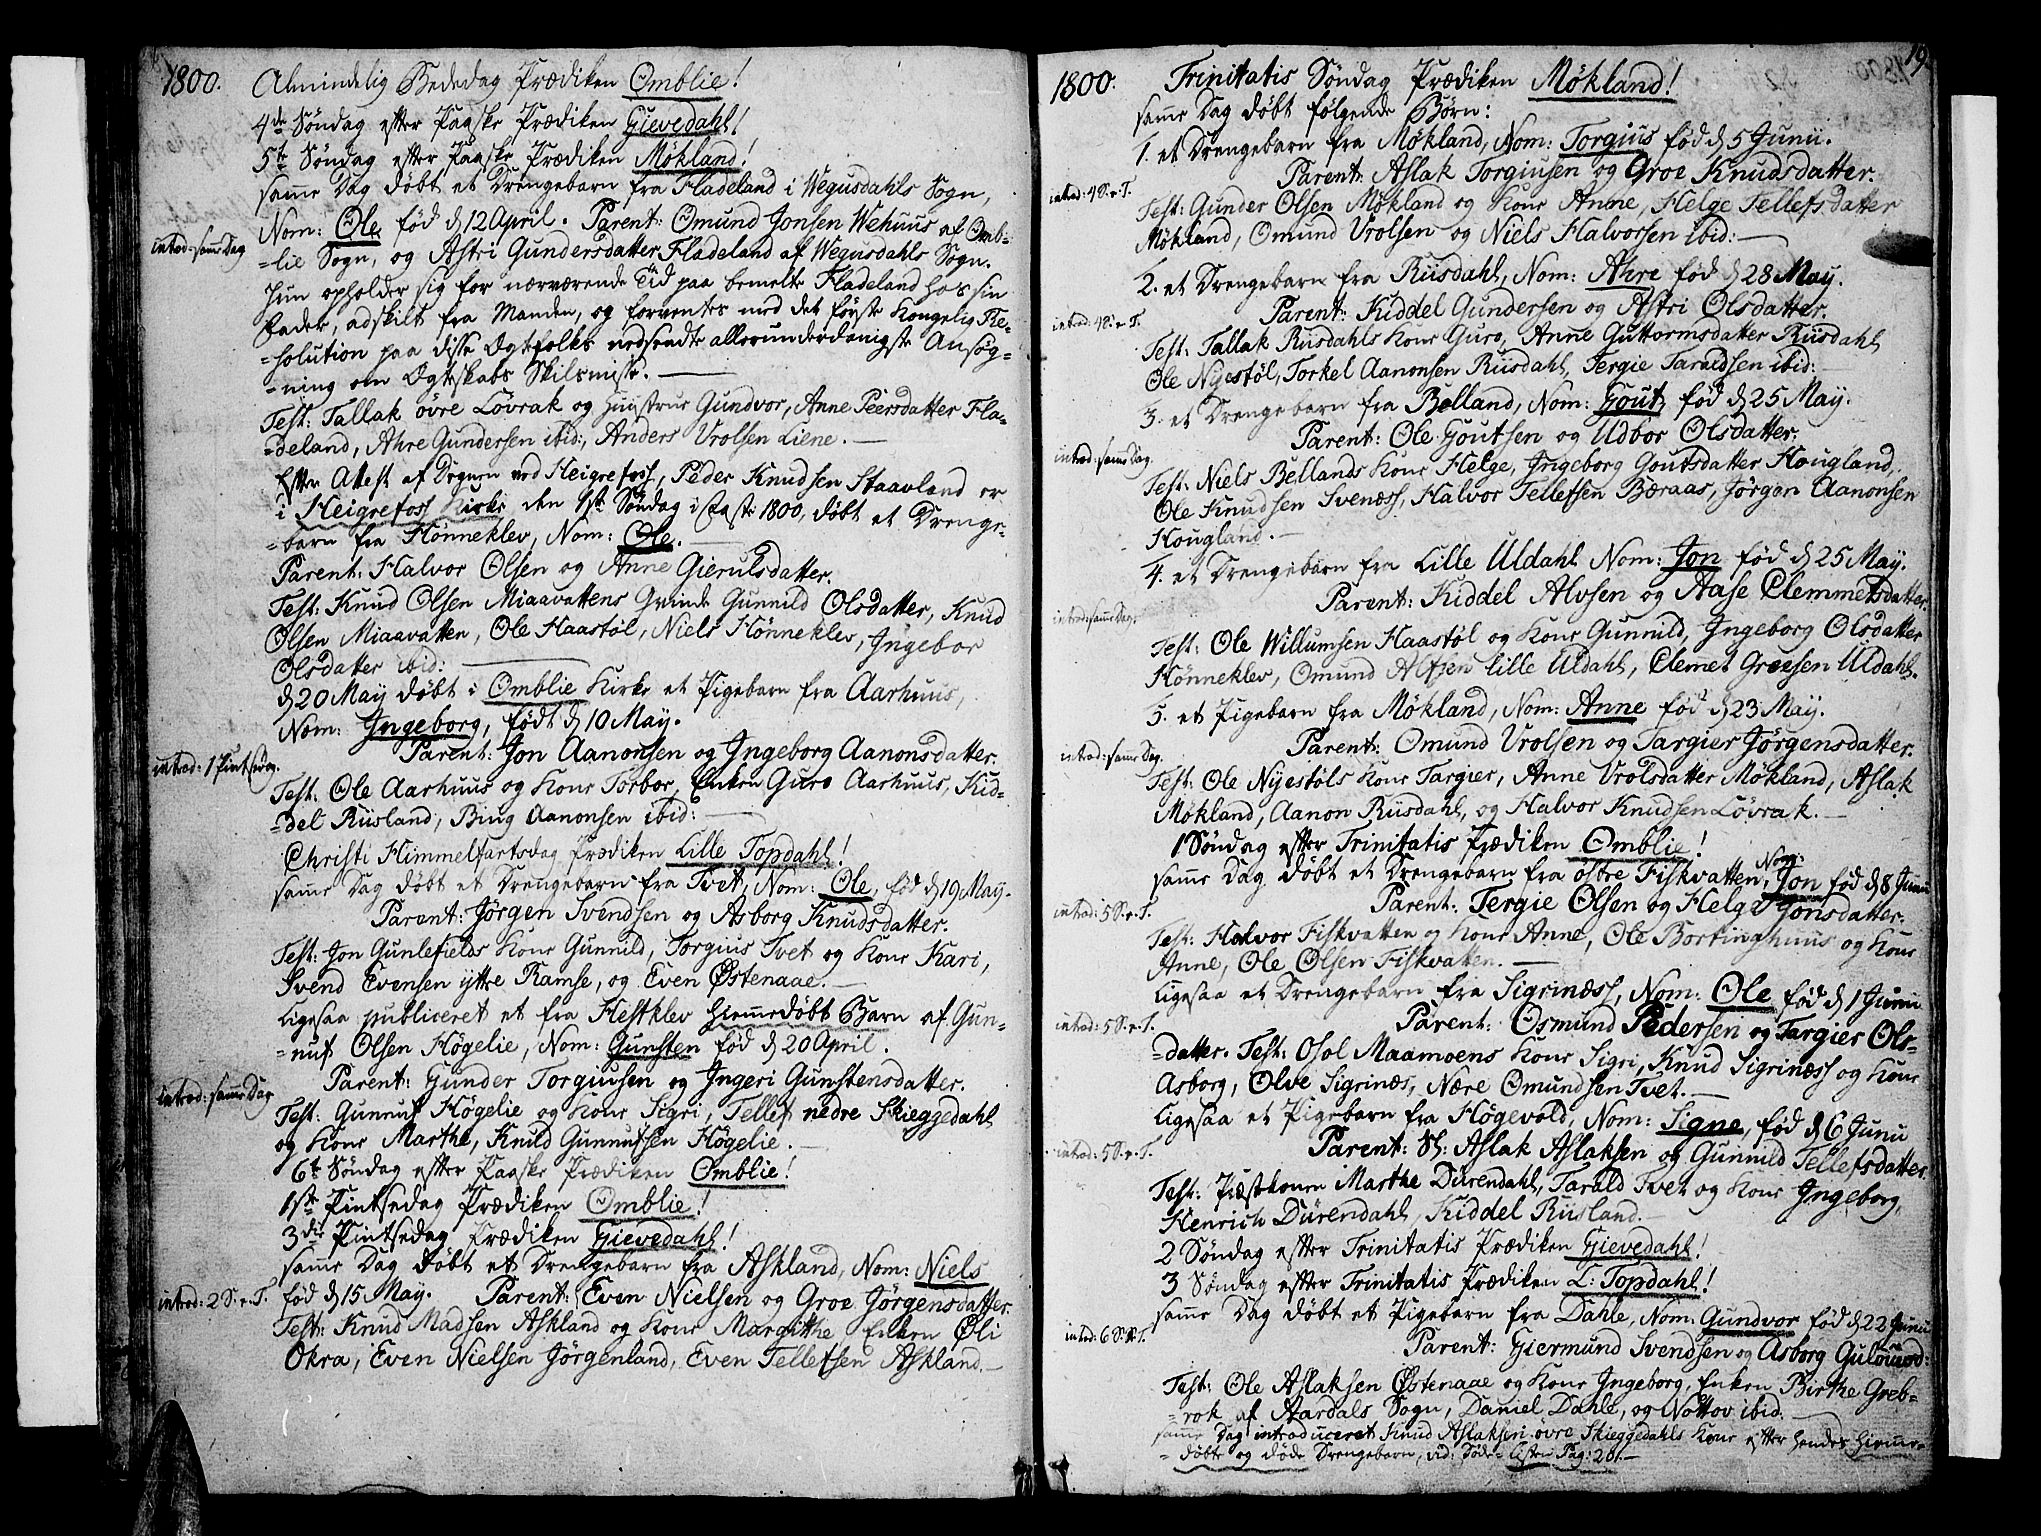 1800. Almindelig Bededag Prædiken Omblie!
4de Søndag efter Paaske Prædiken Gievedahl!
5te Søndag efter Paaske Prædiken Møkland!
samme Dag døbt et Drengebarn fra Fladeland i Wegusdahls Sogn,
Nom: Ole, fød d 12 April. Parent: Omund Jonsen Wehuus af Omb-
introd: samme Dag
=lie Sogn, og Astri Gundersdatter Fladeland af Wegusdahls Sogn.
Hun opholder sig for nærværende Tid paa bemelte Fladeland hos sin
Fader, adskilt fra Manden, og forventes med det første Kongelig Re-
=solution paa disse Ægtefolks nedsendte allerunderdanigste Ansøg-
=ning om Ægteskabs Skilsmisse.
Test: Tallak øvre Løvrak og Huustrue Gundvor, Anne Peersdatter Fla-
=deland, Ahre Gundersen ibid:, Anders Vrolsen Liene.
Efter Attest af Degnen ved Heigrefoss, Peder Knudsen Staavland er
i Heigrefoss Kirke den 1ste Søndag i Faste 1800, døbt et Drenge-
=barn fra Hønneklev, Nom: Ole.
Parent: Halvor Olsen og Anne Gierulsdatter.
Test: Knud Olsen Miaavattens Qvinde Gunnild Olsdatter, Knud
Olsen Miaavatten, Ole Haastøl, Niels Hønneklev, Ingebor
Olsdatter ibid:
d 20 May døbt i Omblie Kirke et Pigebarn fra Aarhuus,
Nom: Ingeborg, født d 10 May.
Parent: Jon Aanonsen og Ingeborg Aanonsdatter.
introd: 1 Pintsedag.
Test: Ole Aarhuus og Kone Torbor, Enken Guro Aarhuus, Kid-
=del Riisland, Bing Aanonsen ibid:
Christi Himmelfartsdag Prædiken Lille Topdahl!
samme Dag døbt et Drengebarn fra Tvet, Nom: Ole, fød d 19 May.
Parent: Jørgen Svendsen og Asborg Knudsdatter.
Test: Jon Gunlefields Kone Gunnild, Torgius Tvet og Kone Kari,
Svend Evensen yttre Ramse, og Even Østenaae.
Ligesaa publiceret et fra Hestklev Hiemmedøbt Barn af Gun-
=nuf Olsen Høgelie, Nom: Gunsten fød d 20 April.
Parent: Gunder Torgiussen og Ingeri Gunstensdatter.
introd: samme Dag
Test: Gunnuf Høgelie og Kone Sigri, Tellef nedre Skieggedahl
og Kone Marthe, Knud Gunnufsen Høgelie.
6te Søndag efter Paaske Prædiken Omblie!
1ste Pintsedag Prædiken Omblie!
3die Pintsedag Prædiken Gievedahl!
samme Dag døbt et Drengebarn fra Askland, Nom: Niels
introd: 2 S. e. T. fød d 15 May. Parent: Even Nielsen og Groe Jørgensdatter.
Test: Knud Madsen Askland og Kone Margithe, Enken Øli
Okra, Even Nielsen Jørgenland, Even Tellefsen Askland.
19
1800. Trinitatis Søndag Prædiken Møkland!
samme Dag døbt følgende Børn:
1. et Drengebarn fra Møkland, Nom: Torgius fød d 5 Junii.
Parent: Aslak Torgiusen og Groe Knudsdatter.
introd: 4 S. e. T.
Test: Gunder Olsen Møkland og Kone Anne, Helge Tellefsdatter
Møkland, Omund Vrolsen og Niels Halvorsen ibid:
2. et Drengebarn fra Riisdahl, Nom: Ahre fød d 28 May.
Parent: Kiddel Gundersen og Astri Olsdatter.
introd: 4 S. e. T.
Test: Tallak Riisdahls Kone Guro, Anne Guttormsdatter Riisdahl
Ole Nyestøl, Torkel Aanonsen Riisdahl, Tergie Taraldsen ibid:
3. et Drengebarn fra Belland, Nom: Gout, fød d 25 May.
Parent: Ole Goutsen og Udbor Olsdatter.
introd: samme Dag.
Test: Niels Bellands Kone Helge, Ingeborg Goutsdatter Hougland,
Ole Knudsen Svenæss, Halvor Tellefsen Bæraas, Jørgen Aanonsen
Hougland.
4. et Drengebarn fra Lille Uldahl Nom: Jon fød d 25 May.
Parent: Kiddel Alvsen og Aase Clemmetsdatter.
introd: samme Dag.
Test: Ole Willumsen Haastøl og Kone Gunnild, Ingeborg Olsdatter
Hønneklev, Omund Alfsen Lille Uldahl, Clemet Gresen Uldahl.
5. et Pigebarn fra Møkland, Nom: Anne fød d 23 May.
Parent: Omund Vrolsen og Targier Jørgensdatter.
introd: samme Dag.
Test: Ole Nyestøls Kone Targier, Anne Vrolsdatter Møkland, Aslak
Møkland, Aanon Riisdahl, og Halvor Knudsen Løvrak.
1 Søndag efter Trinitatis Prædiken Omblie!
samme Dag døbt et Drengebarn fra østre Fiskvatten, Nom: Jon fød d 8 Junii
Parent: Tergie Olsen og Helge Jonsdatter.
introd: 5 S. e. T.
Test: Halvor Fiskvatten og Kone Anne, Ole Borkinghuus og Kone
Anne, Ole Olsen Fiskvatten.
Ligesaa et Drengebarn fra Sigrinæss, Nom: Ole fød d 1 Junii
introd: 5 S. e. T.
Parent: Osmund Pedersen og Targier Ols-
=datter. Test: Osol Maamoens Kone Sigri, Knud Sigrinæss og Kone
Asborg, Olve Sigrinæs, Nære Omundsen Tvet.
Ligesaa et Pigebarn fra Høgevold, Nom: Signe, fød d 6 Junii
introd: 5 S. e. T.
Parent: Sl: Aslak Aslaksen og Gunnild Tellefsdatter.
Test: Præstkonen Marthe Dürendahl, Tarald Tvet og Kone Ingeborg,
Henrich Dürendahl, Kiddel Riisland.
2 Søndag efter Trinitatis Prædiken Gievedahl!
3 Søndag efter Trinitatis Prædiken L: Topdahl!
samme Dag døbt et Pigebarn fra Dahle, Nom: Gundvor fød d 22 Junii
introd: 6 S. e. T.
Parent: Giermund Svendsen og Asborg
Test: Ole Aslaksen Østenaae og Kone Ingeborg, Enken Birthe Greb-
=rok af Aardals Sogn, Daniel Dahle, og Nottov ibid.
samme Dag introduceret Knud Aslaksen øvre Skieggedahls Kone efter hendes hiemme-
=døbte og døde Drengebarn, vid: Døde-Listen Pag: 201.